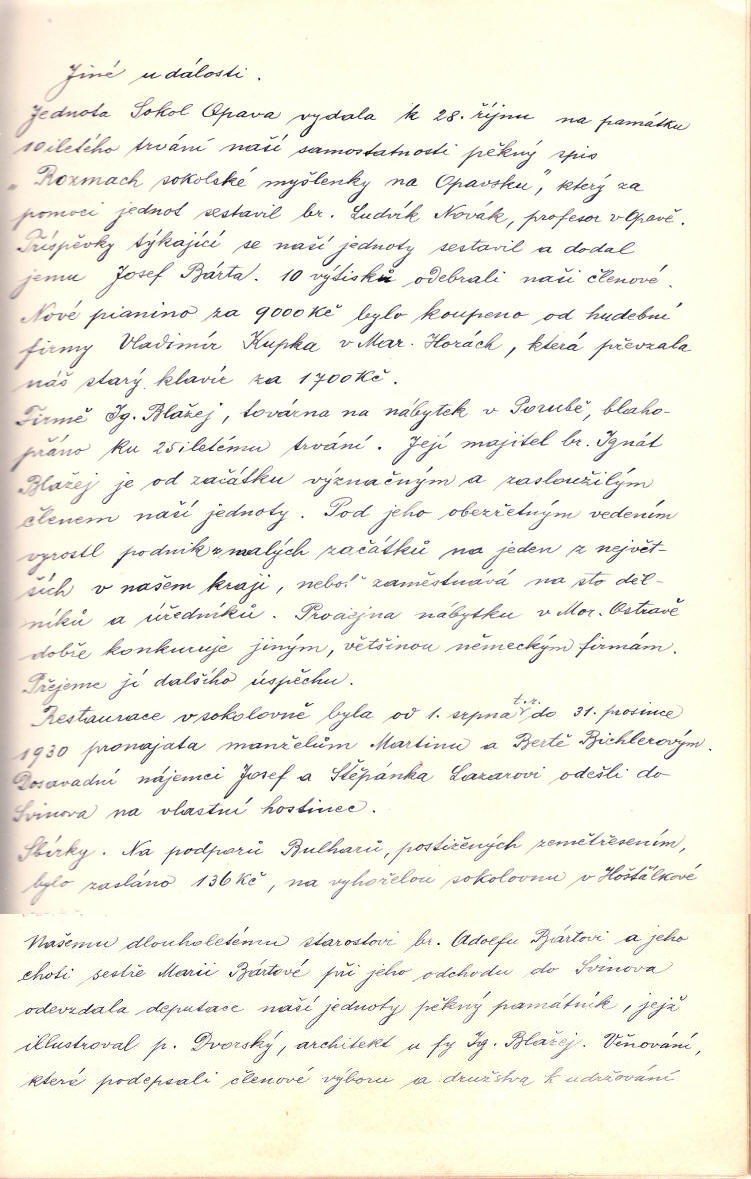 Jiné události.
Jednota Sokol Opava vydala k 28. říjnu na památku
10iletého trvání naší samostatnosti pěkný spis
„Rozmach sokolské myšlenky na Opavsku", který za
pomoci jednot sestavil br. Ludvík Novák, profesor v Opavě.
Příspěvky týkající se naší jednoty sestavil a dodal
jemu Josef Bárta. 10 výtisků odebrali naši členové.
Nové pianino za 9000 Kč bylo koupeno od hudební
firmy Vladimír Kupka v Mar. Horách, která převzala
náš starý klavír za 1700 Kč.
Firmě Ig. Blažej, továrna na nábytek v Porubě, blaho-
přáno ku 25iletému trvání. Její majitel br. Ignát
Blažej je od začátku význačným a zasloužilým
členem naší jednoty. Pod jeho obezřetným vedením
vyrostl podnik z malých začátků na jeden z největ-
ších v našem kraji, neboť zaměstnává na sto děl-
níků a úředníků. Prodejna nábytku v Mor. Ostravě
dobře konkuruje jiným, většinou německým firmám.
Přejeme jí dalšího úspěchu.
Restaurace v sokolovně byla od 1. srpna t.r. do 31. prosince
1930 pronajata manželům Martinu a Bertě Bichlerovým.
Dosavadní nájemci Josef a Štěpánka Lazarovi odešli do
Svinova na vlastní hostinec.
Sbírky. Na podporu Bulharů, postižených zemětřesením,
bylo zasláno 136 Kč, na vyhořelou sokolovnu v Hošťálkové
Našemu dlouholetému starostovi br. Adolfu Bártovi a jeho
choti sestře Marii Bártové při jeho odchodu do Svinova
odevzdala deputace naší jednoty pěkný památník, jejž
illustroval p. Dvorský, architekt u fy Ig. Blažej. Věnování,
které podepsali členové výboru a družstva k udržování